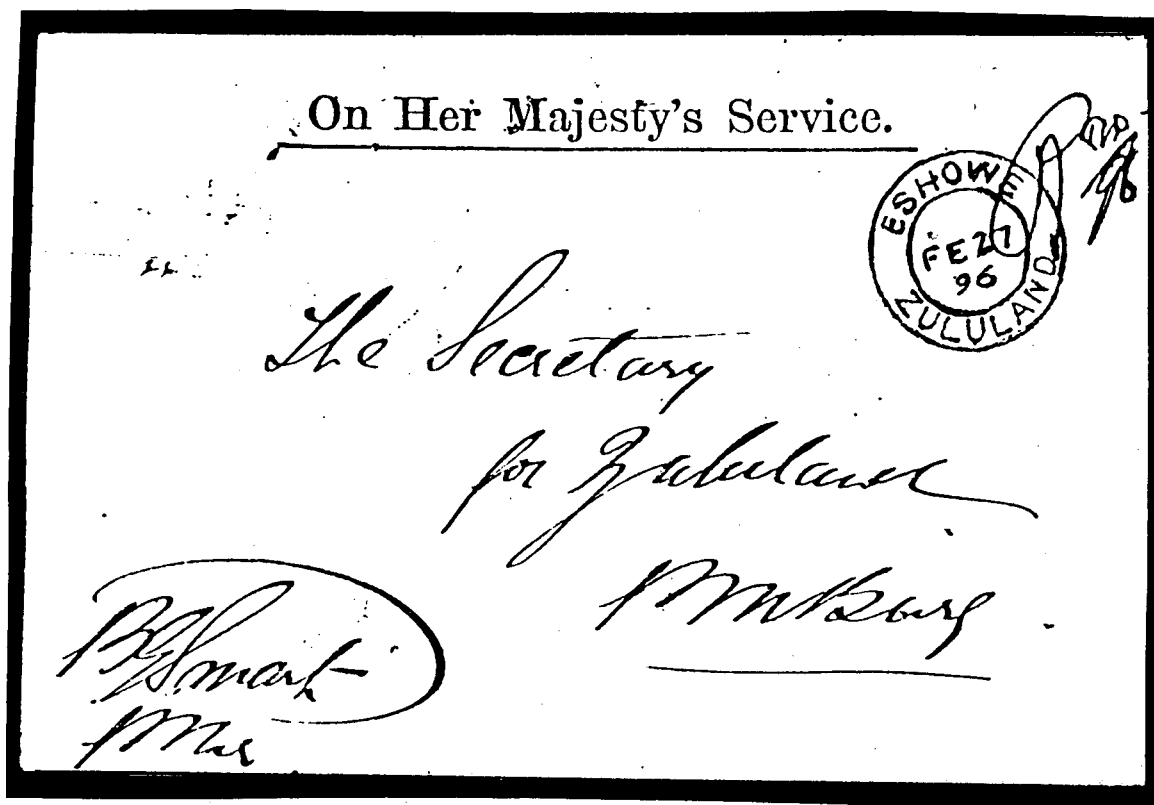 On Her Majesty's Service.
ESHOWE
FE 27
96
ZULULAND
The Secretary
for Zululand
PMBurg
Smart